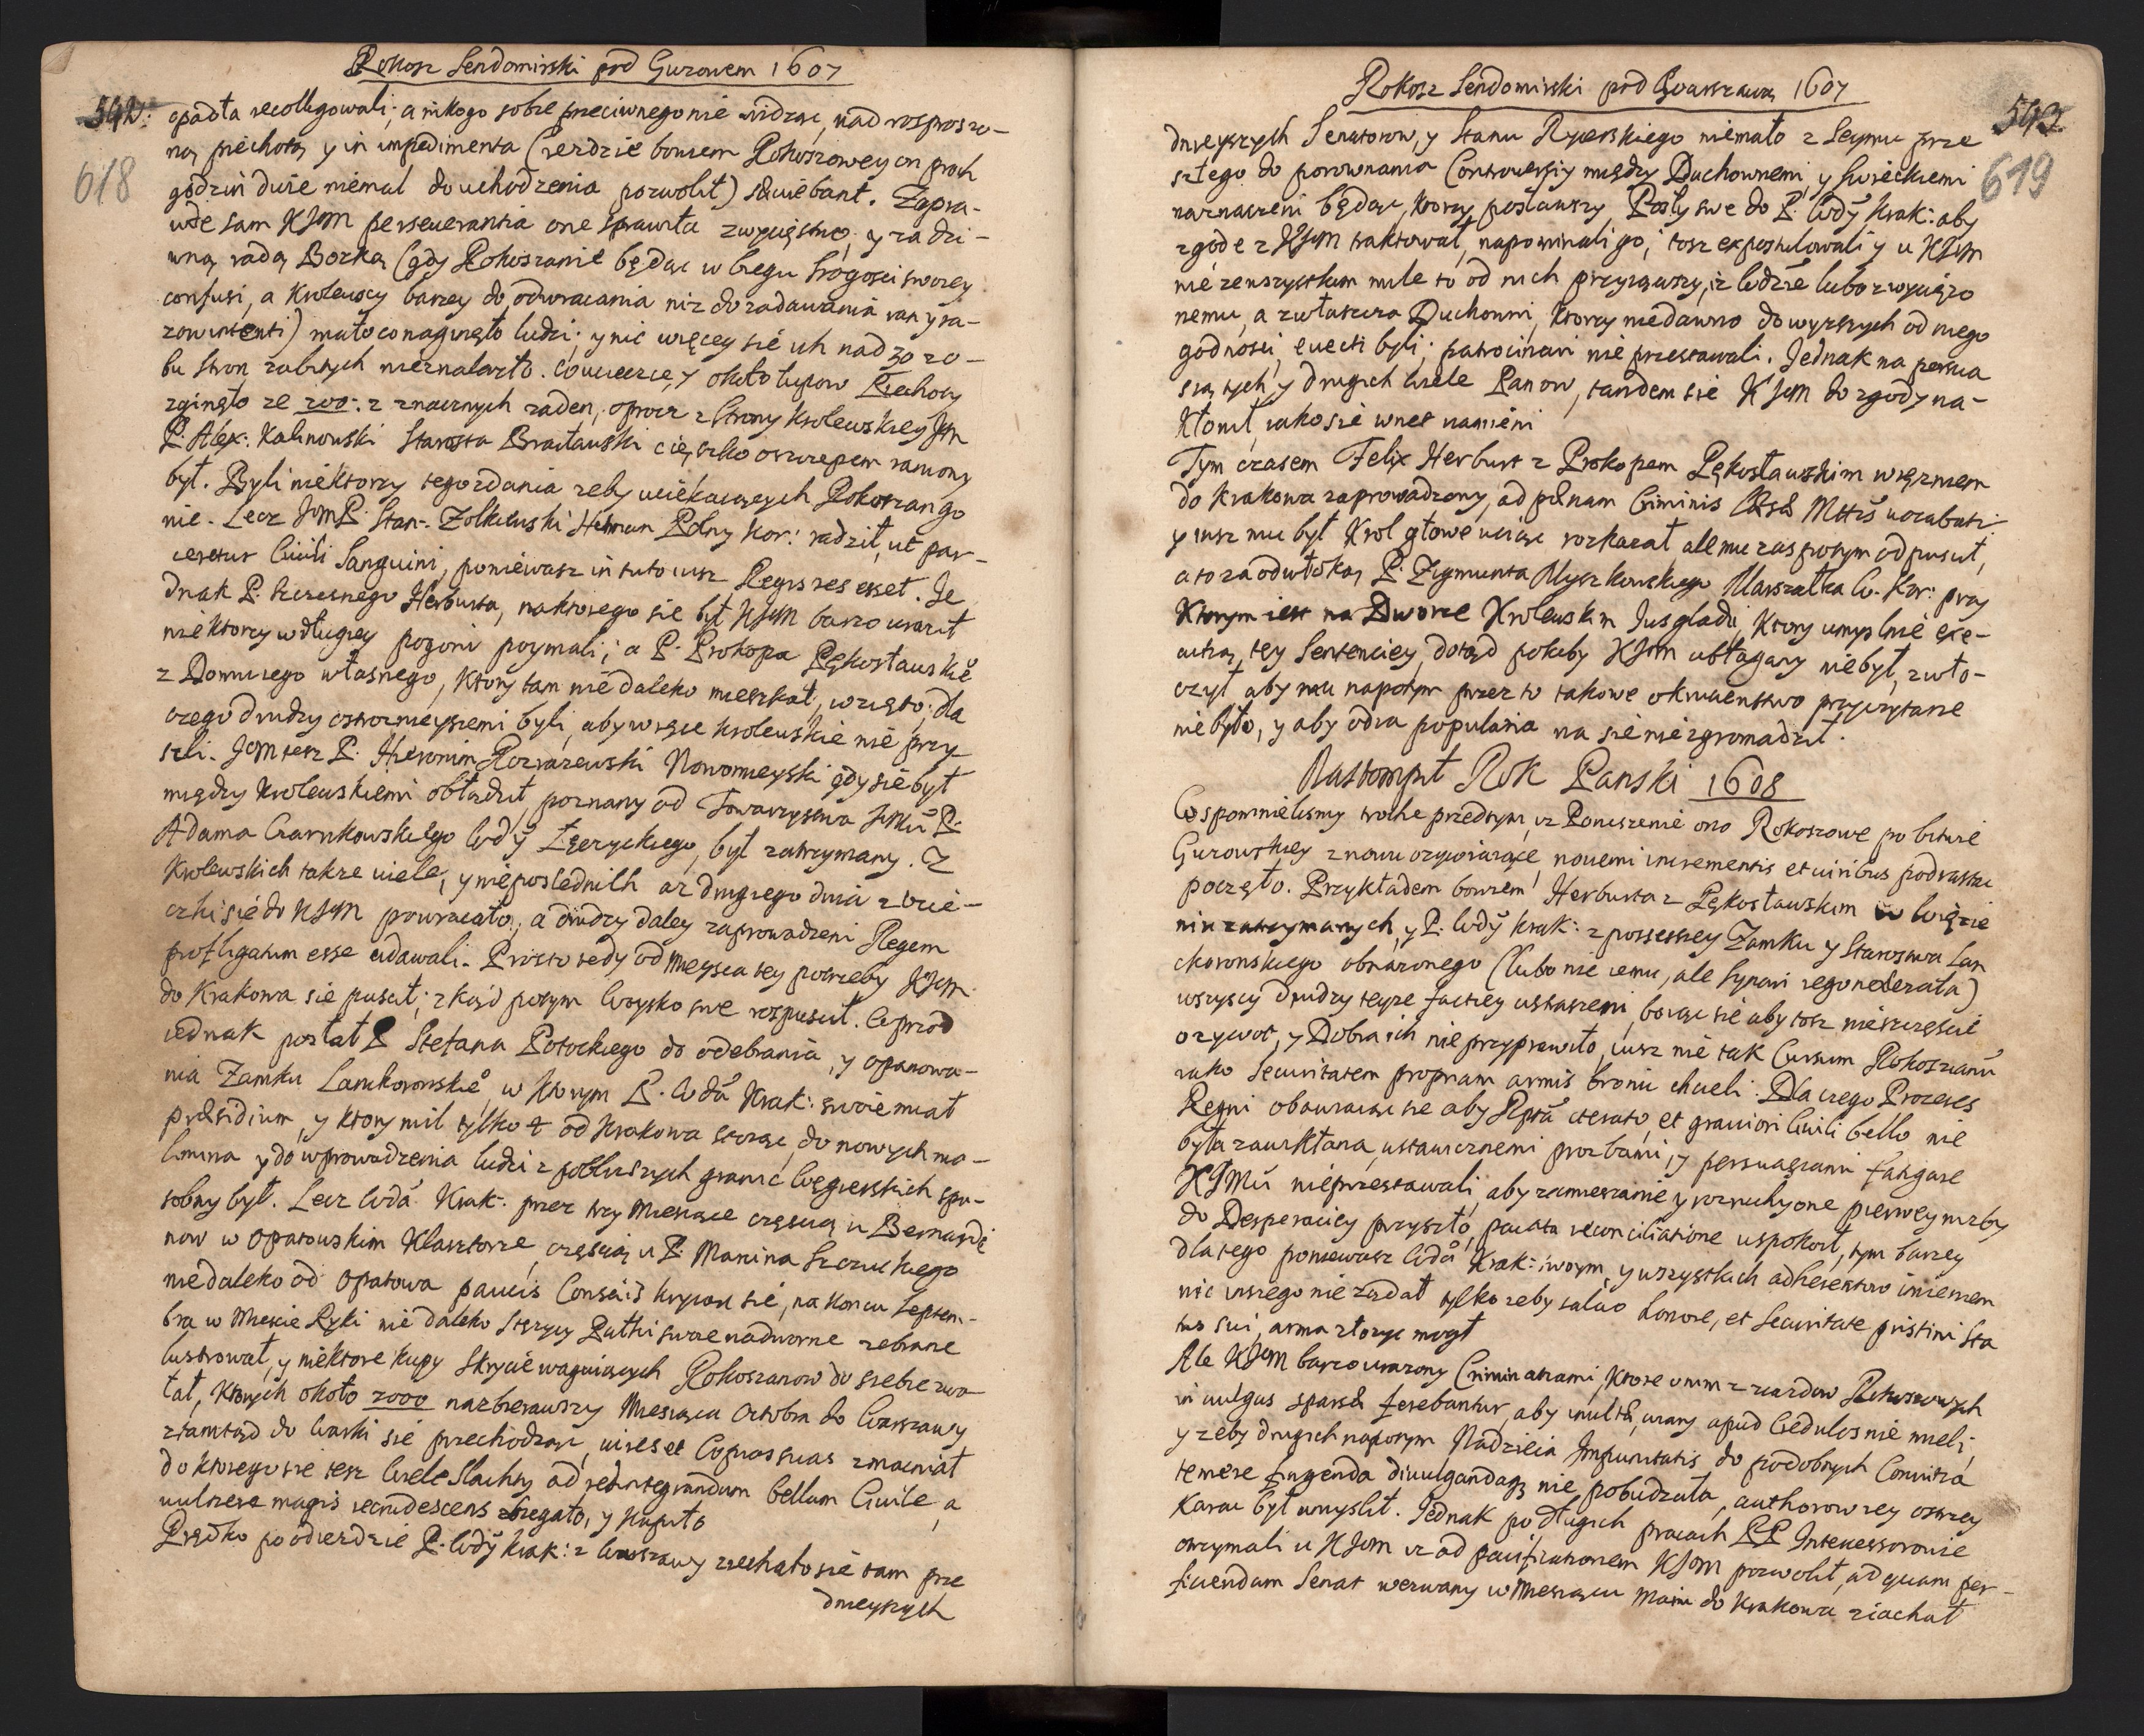 Rokosz Sendomirski pod Guzowem 1607
592.
618
opadła recolligowali; a nikogo sobie przeciwnego nie widząc, nad rosproszo-
ną piechotą y in impedimenta (Jezdzie bowiem Rokoszowey on proch
godzin dwie niemal do uchodzenia pozwolił) sæuiebant. Zapra-
wde sam KJM perseuerantia one sprawiła zwycięstwo, y za dzi-
wną radą Bozką (gdy Rokoszanie będąc w biegu srogosci swoiey
confusi, a Krolewscy barzey do odwracania niz do zadawania ran y ra-
zow intenti) mało co naginęło ludzi; y nic więcey sie ich nad 30 z o-
bu stron zabitych nieznalazło. Co wieczcie, y około łupow Piechoty
zginęło ze 200. z znacznych zaden, oprocz z strony Krolewskiey Jm
P. Alex: Kalinowski Starosta Bracławski cięszko oszczepem raniony
był. Byli niektorzy tego zdania zeby uciekaiących Rokoszan go
nić. Lecz JmP. Stan: Zolkiewski Hetman Polny Kor: radził, ut par-
ceretur Ciuili Sanguini, poniewasz in tuto iusz Regis res esset. Je
dnak P. Szczesnego Herburta, na ktorego sie był KJM barzo uraził
niektorzy w długiey pogoni poymali; a P. Prokopa Pękosławskieo
z Domu iego własnego, ktory tam nie daleko mieszkał, wzięto; dla
czego drudzy ostroznieyszemi byli, aby w ręce krolewskie nie przy-
szli. Jem tesz P. Hieronim Rozrazewski Nowomeyski gdy sie był
między Krolewskiemi obładził, poznany od Towarzystwa Jmci P.
Adama Czarnkowskiego Wdy Łęczyckiego, był zatrzymany. Z
Krolewskich takze wiele, y nieposlednich az drugiego dnia z ucie-
czki sie do KJM powracało; a drudzy daley zaprowadzeni Regem
profligatum esse udawali. Prosto tedy od mieysca tey potrzeby KJM
do Krakowa sie puscił; zkąd potym Woysko swe rospuscił. Wprzod
iednak posłał P. Stefana Potockiego do odebrania, y opanowa-
nia Zamku Lanckoronskieo, w Ktorym P. Wda Krak: swoie miał
præsidium, y ktory mil tylko 4 od Krakowa stoiąc, do nowych mo-
limina y do wprowadzenia ludzi z pobliszszych granic Węgierskich spo-
sobny był. Lecz Wda Krak: przez trzy Miesiące częscią u Bernardi
now w Opatowskim Klasztorze, częscią u P. Marcina Szczuckiego
niedaleko od Opatowa paucis Consciis kryiąc sie, na koncu Septem-
bra w Miescie Ryki nie daleko Stęzyce Pułki swoie nadworne zebrane
lustrował, y niektore kupy skrycie waguiących Rokoszanow do siebie zwa-
tał, Ktorych około 2000 nazbierawszy Miesiąca Octobra do Warszawy
ztamtąd do Warki sie przechodząc, vires et Copias suas zmacniał
do ktorego sie tesz wiele Slachty ad redintegrandum bellum Ciuile, a
uulnere magis recrudescens zbiegało, y kupiło
Prędko po odiezdzie P. Wdy Krak: z Warszawy ziechało sie tam prze
dnieyszych
Rokosz Sendomirski pod Warszawą 1607
593
619
dnieyszych Senatorow, y Stanu Rycerskiego niemało z Seymu prze
szłego do porownania Controuersiy między Duchownemi, y Swieckiemi
naznaczeni będąc, ktorzy posławszy Posły swe do P. Wdy Krak: aby
zgode z KJM traktował, napominali go, tosz expostulowali y u KJM
nie zewszystkim mile to od nich przyiąwszy, iz Wdzie lubo zwycięzo
nemu, a zwłaszcza Duchowni, ktorzy niedawno do wyzszych od niego
godnosci euecti byli, patrocinari nie przestawali. Jednak na persua
sią tych, y drugich wiele Panow, tandem sie KJM do zgody na-
kłonił, iako sie wnet namieni
Tym czasem Felix Herburt z Prokopem Pękosławskim więzniem
do Krakowa zaprowadzony, ad pænam Criminis læsæ Mttis uocabatur
y iusz mu był Krol głowe uciąc rozkazał ale mu zas potym odpuscił,
a to za odwłoką P. Zygmunta Myszkowskiego Marszałka W. Kor: przy
Ktorym iest na Dworze Krolewskim Jus gladii, Ktory umyslnie exe-
cutią tey Sentenciey, dotąd pokiby KJM ubłagany nie był, zwło-
czył, aby mu napotym przez to takowe okrucienstwo przyczytane
nie było, y aby odia popularia na sie nie zgromadził.
Nastompił Rok Panski 1608
Wspomnielismy trochę przedtym, iz Poruszenie ono Rokoszowe po bitwie
Guzowskiey znowu ozywiaiące, nouemi incrementis et uiribus podrastac
poczęło. Przykładem bowiem Herburta z Pękosławskim w Więzie
niu zatrzymanych, y P. Wdy Krak: z possessiey Zamku y Starostwa Lan
ckoronskiego obnazonego (lubo nie iemu, ale synowi iego nalezała)
wszyscy drudzy teyze factiey ustraszeni, boiąc sie aby tosz nieszczęscie
o zywot, y Dobra ich nie przyprawiło, iusz nie tak Cursum Rokoszanu
iako securitatem propriam armis bronic chcieli. Dla czego Proceres
Regni obawiaiąc sie aby Rpta iterato, et grauiori Ciuili bello nie
była zawikłana, ustawicznemi prozbami, y persuasiami fatigare
KJMci nieprzestawali, aby zamieszanie y rozruchy one pierwey nizby
do Desperaciey przyszło, pacata reconciliatione uspokoił, tym barzey
dlatego poniewasz Wda Krak: swoym, y wszystkich adherentow imieniem
nic inszego nie ządał tylko zeby saluo honore, et Securitate pristini Sta
tus sui, arma złozyc mogł
Ale KJM barzo urazony Criminatiami, Ktore onim z ziazdow Rokoszowych
in uulgus sparsæ ferebantur, aby inultæ, wiary apud Credulos nie mieli;
y zeby drugich napotym Nadzieia Impunitatis do podobnych Conuitia
temere fingenda diuulgandaq; nie pobudzała, authorow iey ostrzey
karac był umyslił. Jednak po długich pracach PP. Intercessorowie
otrzymali u KJM iz ad pacificationem KJM pozwolił, ad quam per-
ficiendam Senat wezwany w Miesiącu Maiu do Krakowa ziachał